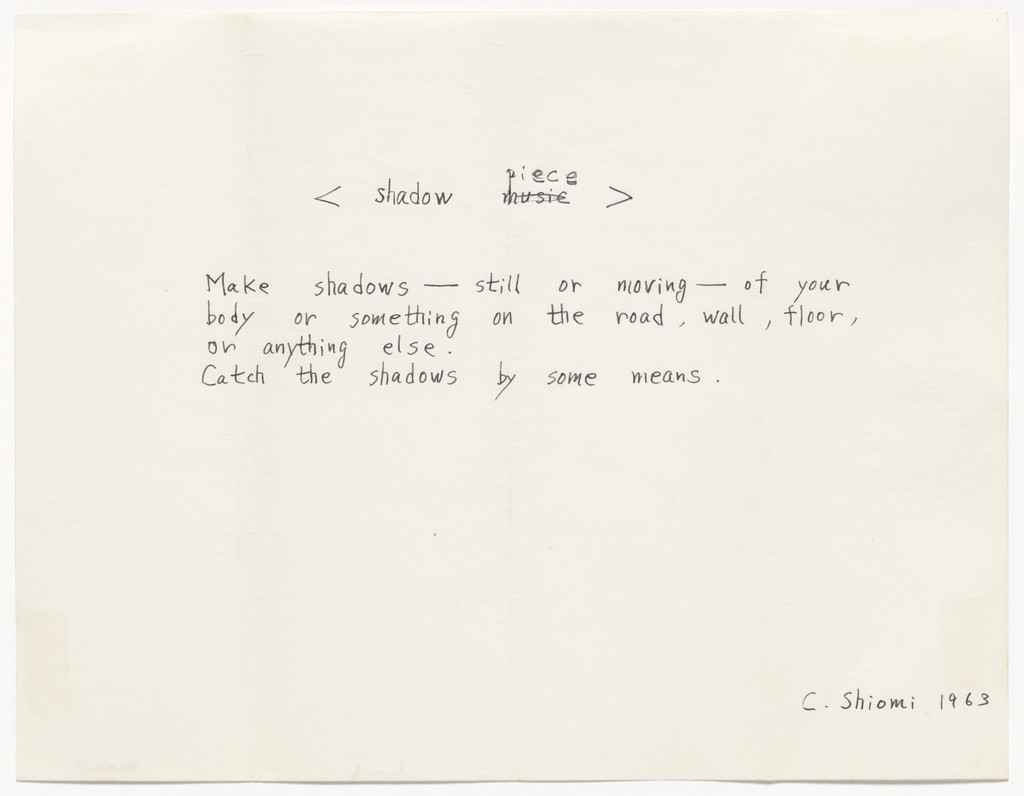 piece
< shadow music >
Make shadows — still or moving — of your
body or something on the road, wall, floor,
or anything else.
Catch the shadows by some means.
C. Shiomi 1963